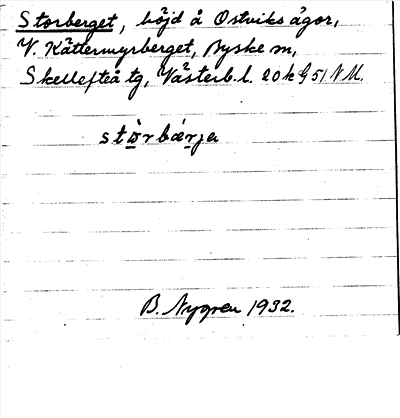 Storberget, höjd å Ostviks ägor,
V. Kättermyrberget, Byske sn,
Skellefteå tg, Västerb. l. 20k G 51 NM.
stɷ̀rbǽrja
B. Nygren 1932.